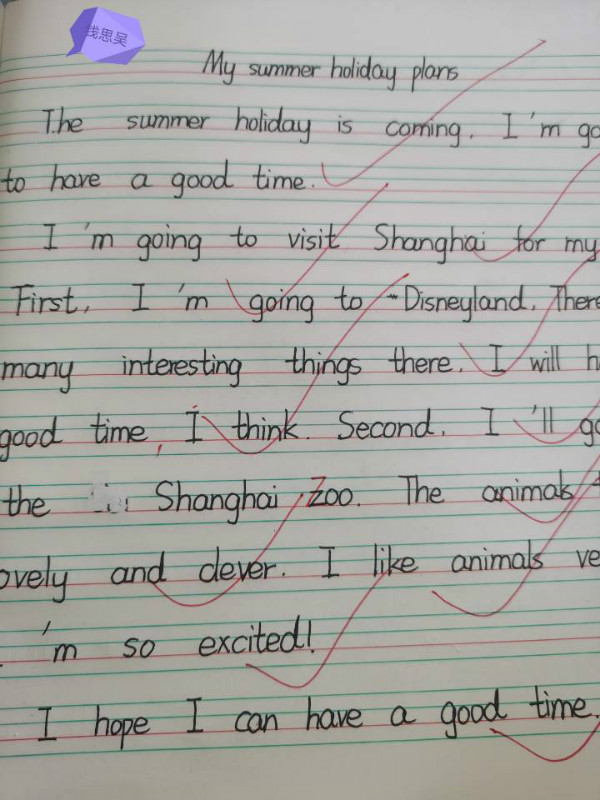 钱思吴
My summer holiday plans
The summer holiday is coming. I'm go
to have a good time.
I'm going to visit Shanghai for my
First, I'm going to Disneyland. There
many interesting things there. I will h
good time, I think. Second, I'll go
the Shanghai Zoo. The animals
ovely and clever. I like animals ve
. 'm so excited!
I hope I can have a good time.